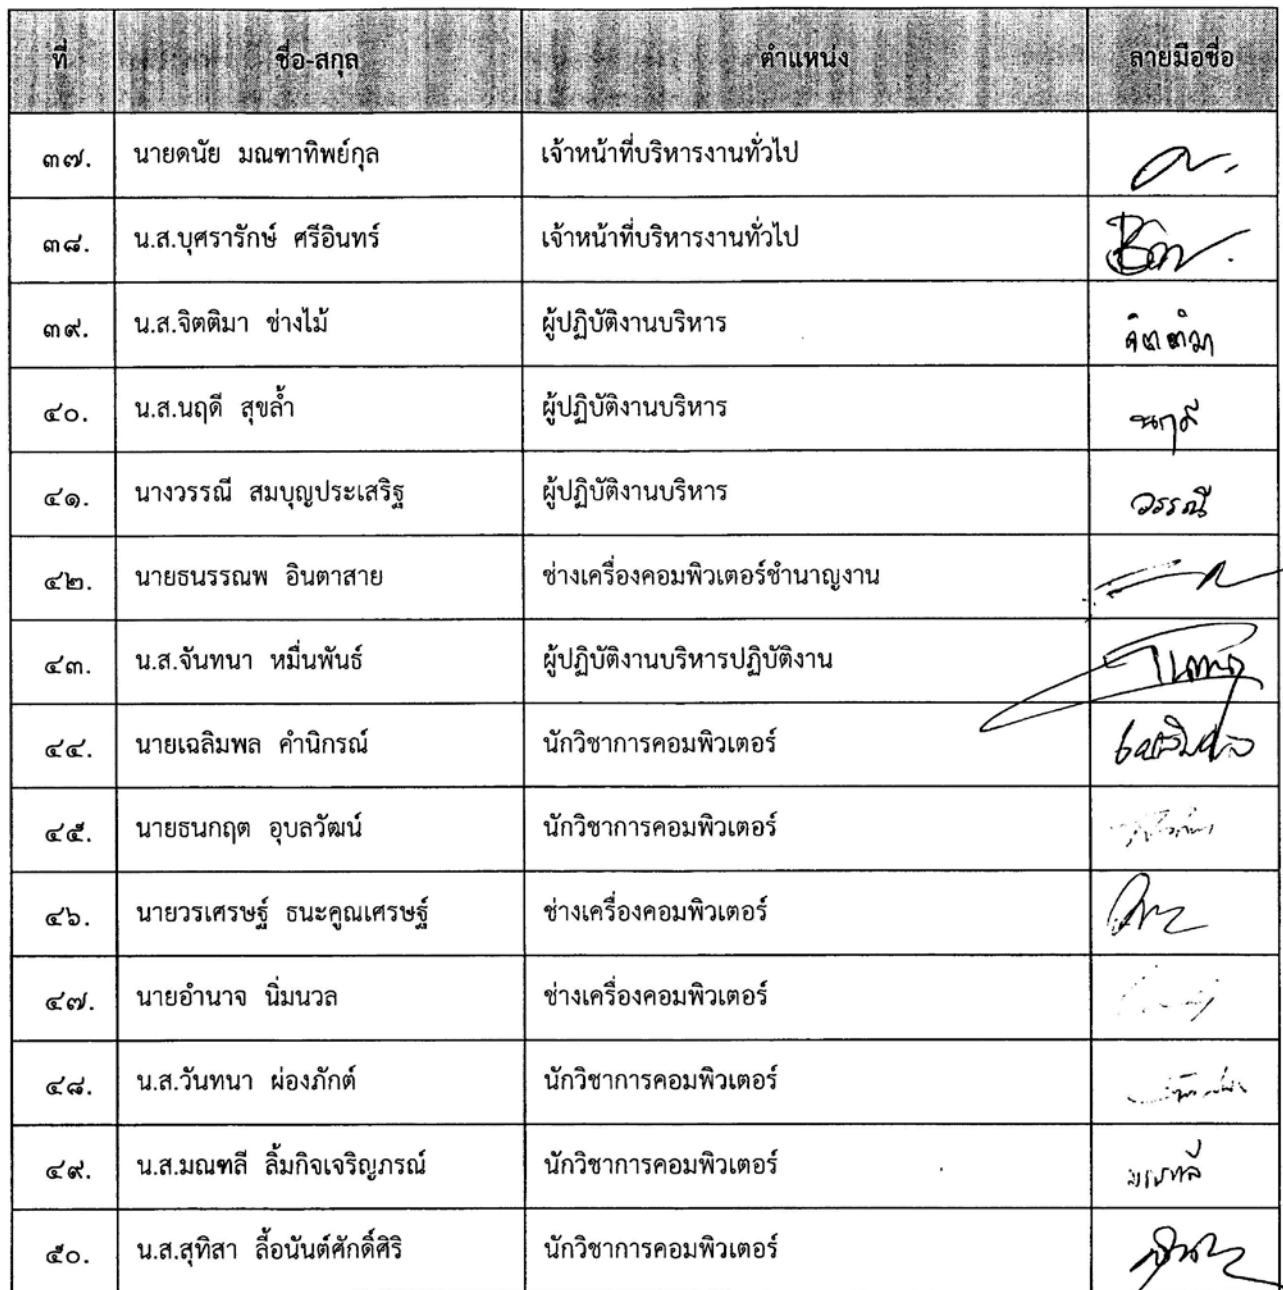 ที่ ชื่อ-สกุล ตำแหน่ง ลายมือชื่อ
๓๗. นายดนัย มณฑาทิพย์กุล เจ้าหน้าที่บริหารงานทั่วไป
๓๘. น.ส.บุศรารักษ์ ศรีอินทร์ เจ้าหน้าที่บริหารงานทั่วไป
๓๙. น.ส.จิตติมา ช่างไม้ ผู้ปฏิบัติงานบริหาร จิตติมา
๔๐. น.ส.นฤดี สุขล้ำ ผู้ปฏิบัติงานบริหาร นฤดี
๔๑. นางวรรณี สมบุญประเสริฐ ผู้ปฏิบัติงานบริหาร วรรณี
๔๒. นายธนรรณพ อินตาสาย ช่างเครื่องคอมพิวเตอร์ชำนาญงาน
๔๓. น.ส.จันทนา หมื่นพันธ์ ผู้ปฏิบัติงานบริหารปฏิบัติงาน
๔๔. นายเฉลิมพล คำนิกรณ์ นักวิชาการคอมพิวเตอร์ เฉลิมพล
๔๕. นายธนกฤต อุบลวัฒน์ นักวิชาการคอมพิวเตอร์
๔๖. นายวรเศรษฐ์ ธนะคูณเศรษฐ์ ช่างเครื่องคอมพิวเตอร์
๔๗. นายอำนาจ นิ่มนวล ช่างเครื่องคอมพิวเตอร์
๔๘. น.ส.วันทนา ผ่องภักต์ นักวิชาการคอมพิวเตอร์
๔๙. น.ส.มณฑลี ลิ้มกิจเจริญภรณ์ นักวิชาการคอมพิวเตอร์ มณฑลี
๕๐. น.ส.สุทิสา ลื้อนันต์ศักดิ์ศิริ นักวิชาการคอมพิวเตอร์